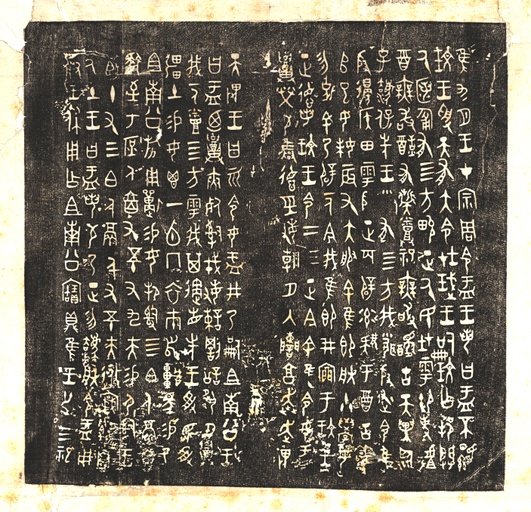 隹九月王才宗周令盂王若曰盂不顯
玟王受天有大令在珷王嗣玟乍邦闢
厥匿匍有四方畯正厥民在雩御事
酉無敢酖有髭蒸祀無敢擾古天異臨
子法保先王有四方我聞殷述令隹
殷邊侯田雩殷正百辟率肄于酉古喪
𠂤巳女妹辰又大服余隹即朕小學女
勿克余乃辟一人今我隹即井廩于玟王
正德若玟王令二三正今余隹令女盂
召榮敬雍德經敏朝夕入諫享奔走畏
天畏王曰而令女盂井乃嗣且南公王
曰盂乃召夾死司戎敏諫罰訟夙夕召
我一人烝四方雩我其遹省先王受民受
疆土易女鬯一卣冂衣巿舄車馬易乃
且南公旂用狩易女邦司四白人鬲自
馭至于庶人六百又五十又九夫易尸司王
臣十又三白人鬲千又五十夫遷自
厥土王曰盂若敬乃正勿廢朕令盂用
對王休用乍且南公寶鼎隹王廿又三祀